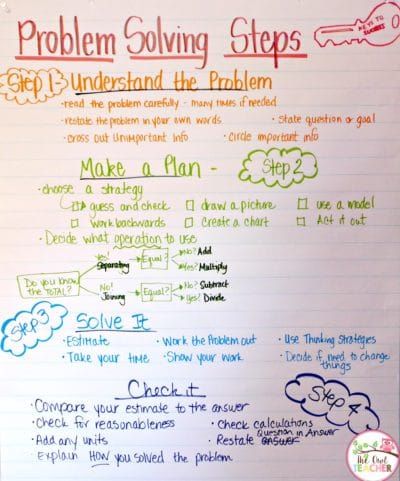 Problem Solving Steps
KEYS TO SUCCESS
Step 1 Understand the Problem
• read the problem carefully - many times if needed
• restate the problem in your own words • State question or goal
• cross out Unimportant info • Circle important info
Make a Plan - Step 2
• choose a strategy
guess and check draw a picture use a model
work backwards Create a chart Act it out
• Decide what operation to use
Do you know the TOTAL?
Yes! Separating Equal? No? Add
Yes? Multiply
No! Joining Equal? No? Subtract
Yes! Divide
Step 3 Solve It
• Estimate • Work the Problem out • Use Thinking Strategies
• Take your time • Show your work • Decide if need to change things
Check it Step 4
• Compare your estimate to the answer
• Check for reasonableness • Check calculations
• Add any units • Restate answer Question in Answer
• Explain HOW you solved the problem
the Owl TEACHER